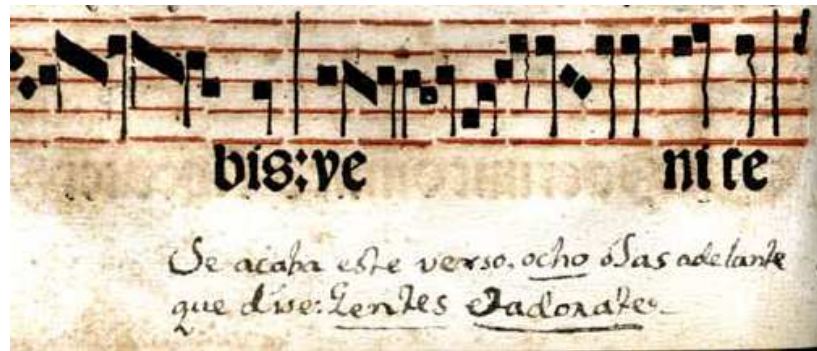 bis: ve ni te
Se acaba este verso, ocho ojas adelante
que dise: Gentes et adorate.